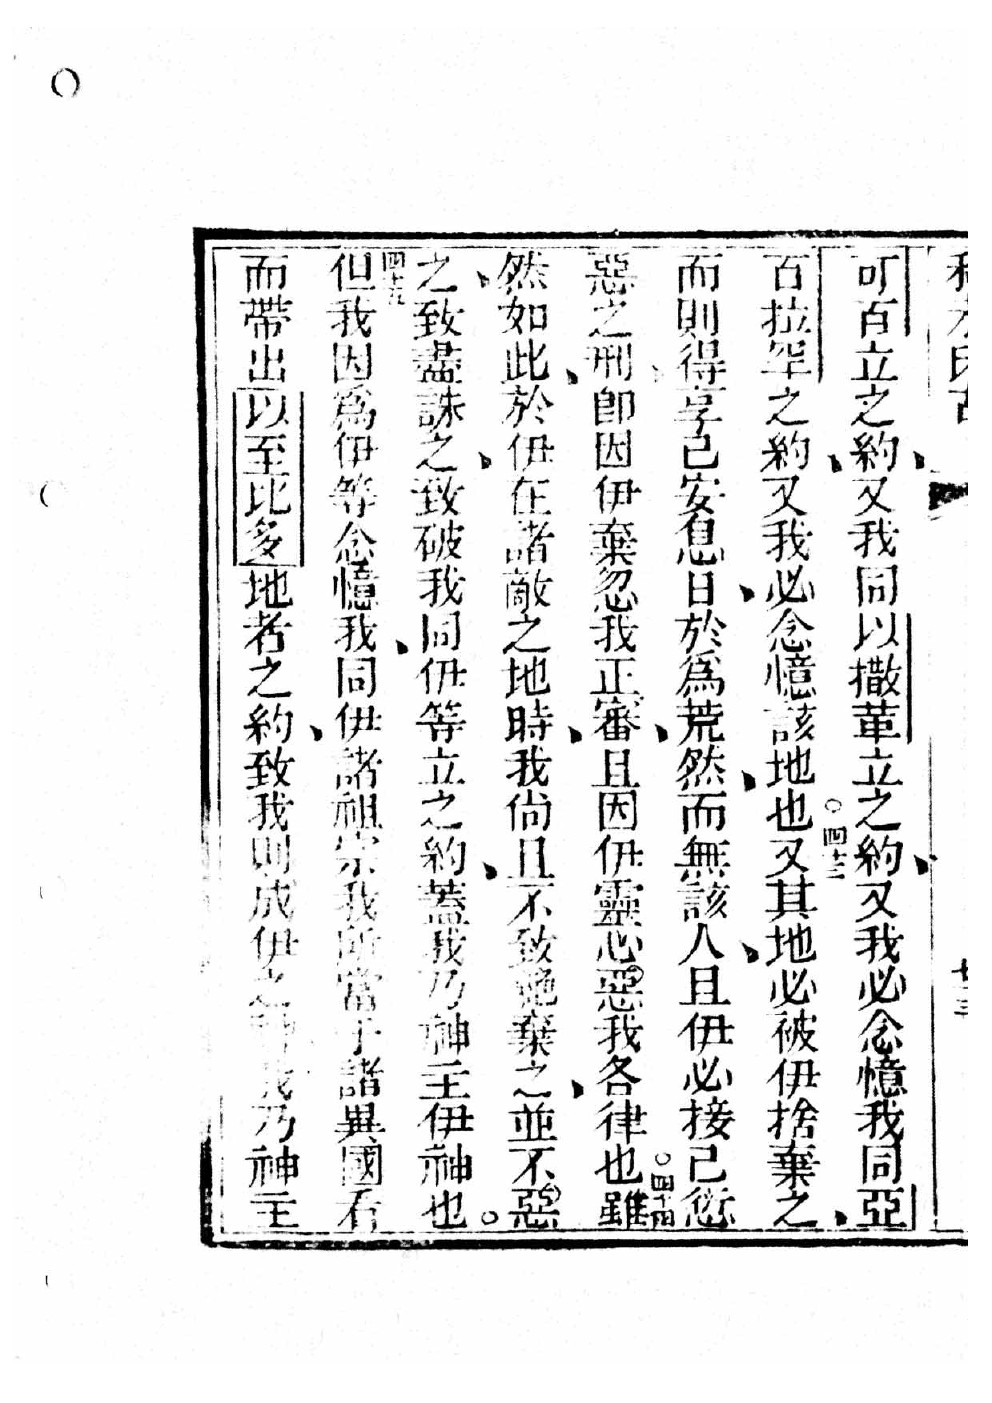 可百立之約、又我同以撒革立之約、又我必念憶我同亞
百拉罕之約、又我必念憶該地也。四十三又其地必被伊捨棄之、
而則得享己安息日、於爲荒然、而無該人、且伊必接己愆
惡之刑、卽因伊棄忽我正審、且因伊靈心惡我各律也。四十四雖
然如此、於伊在諸敵之地時、我尙且不致絶棄之、並不惡
之、致盡誅之、致破我同伊等立之約、蓋我乃神主伊神也。
四十五但我因爲伊等念憶我、同伊諸祖宗我所當于諸異國看
而帶出以至比多地者之約、致我則成伊之神我乃神主